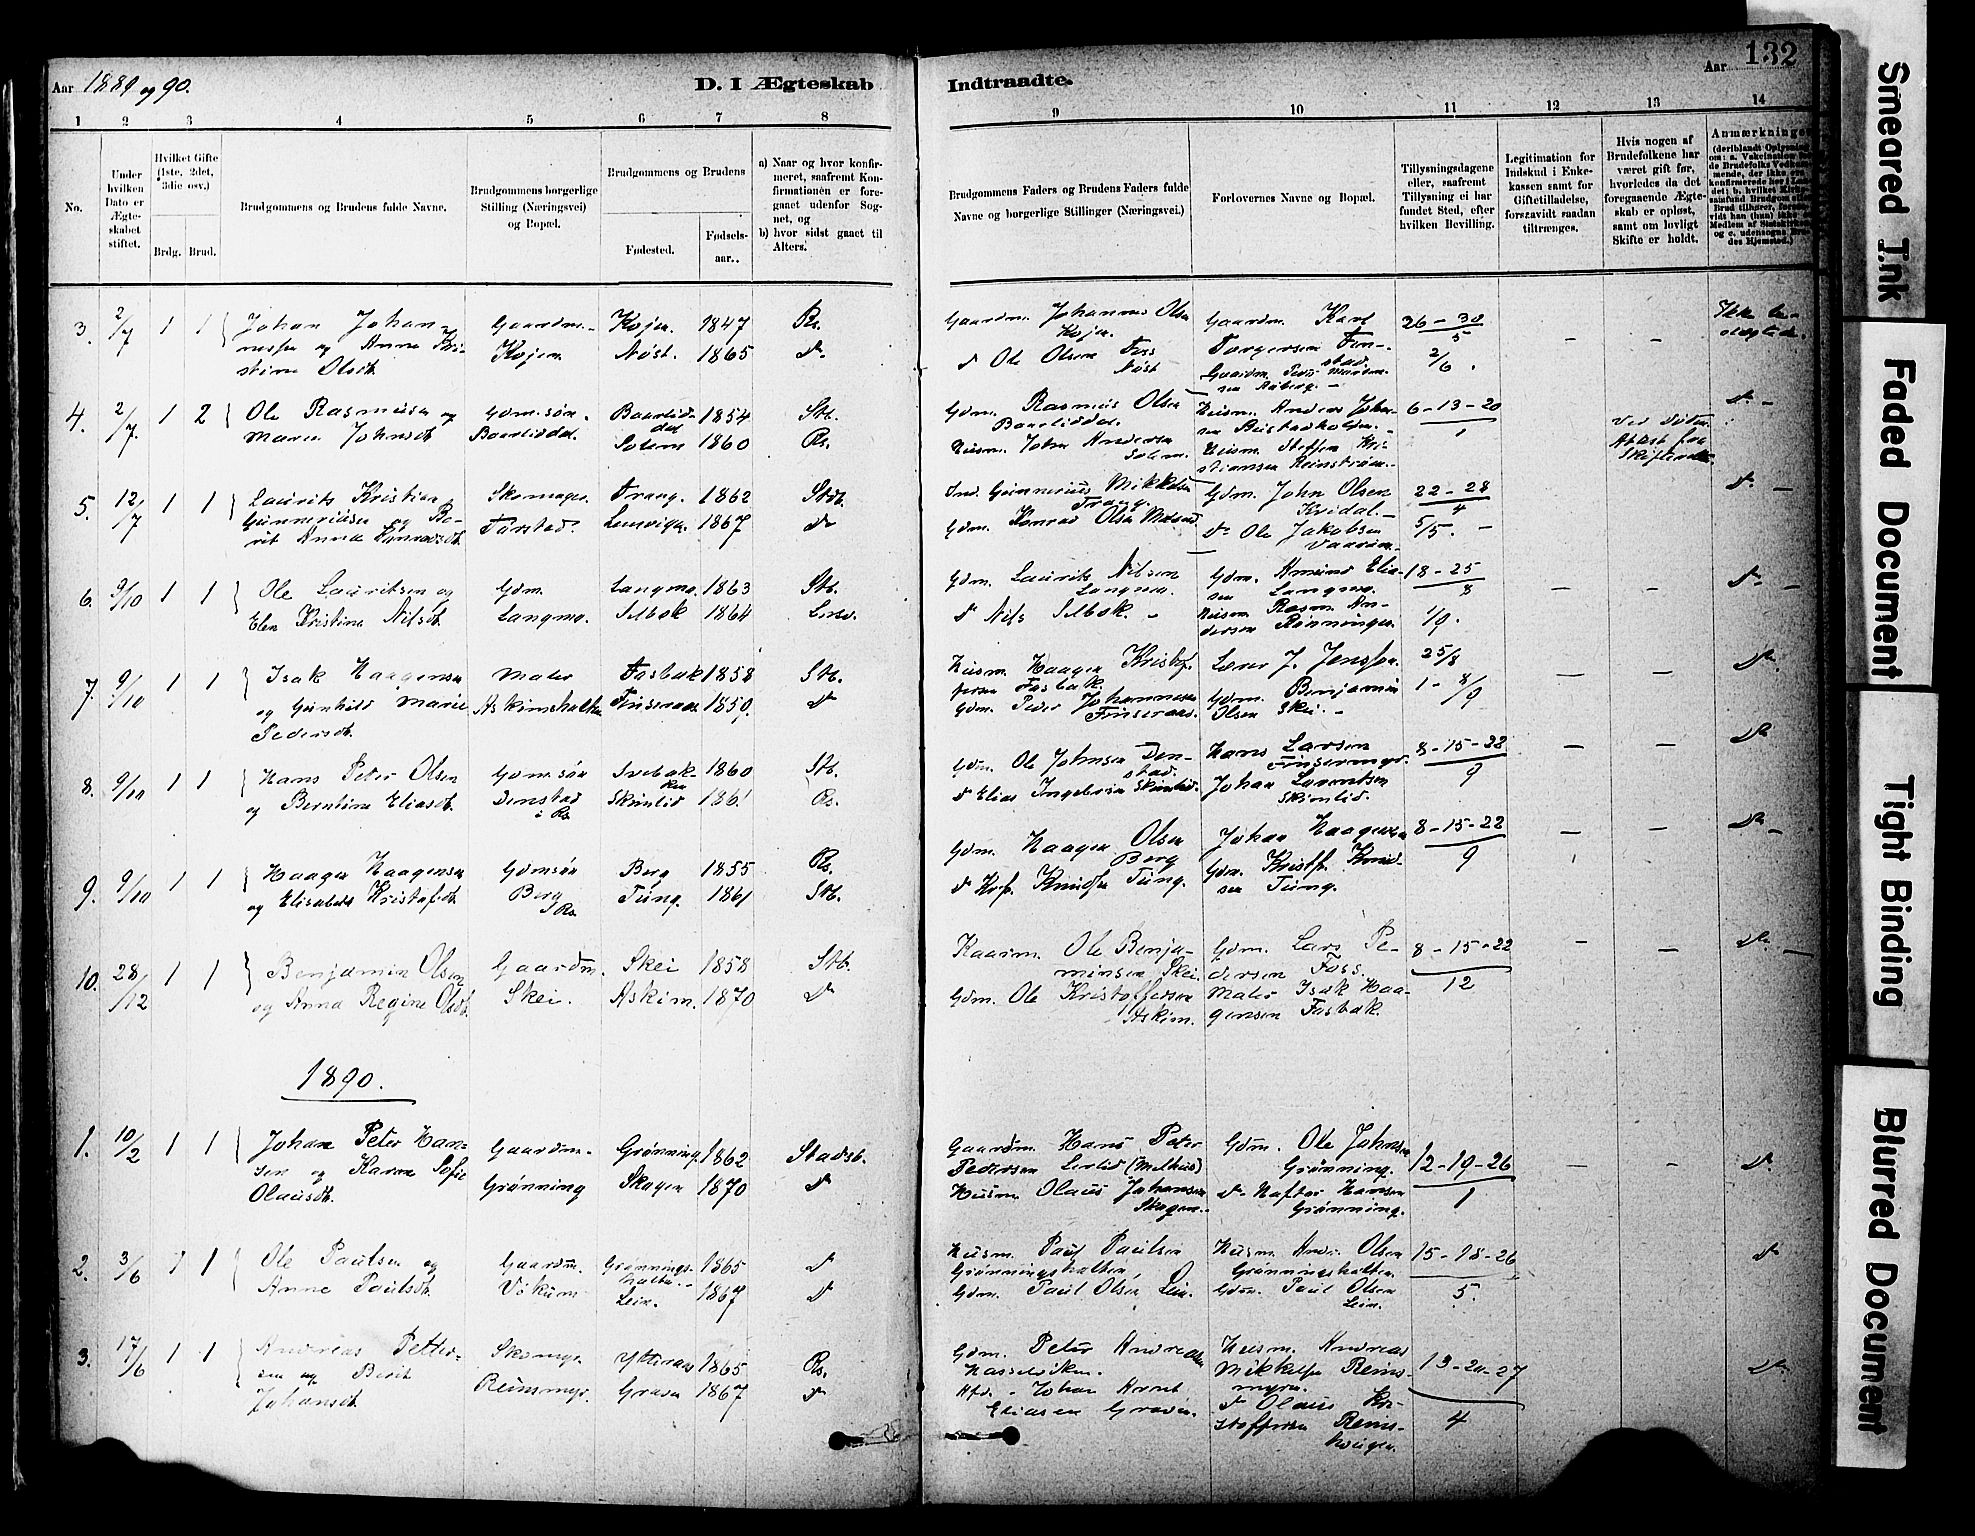 Aar 1889 og 90.
D. I Ægteskab
Indtraadte.
Aar 132
1 2 3 4 5 6 7 8
9 10 11 12 13 14
No.
Under hvilken Dato er Ægteskabet stiftet.
Hvilket Gifte (1ste, 2det, 3die osv.)
Brdg. Brud.
Brudgommens og Brudens fulde Navne.
Brudgommens borgerlige Stilling (Næringsvei) og Bopæl.
Brudgommens og Brudens
Fødested.
Fødselsaar..
a) Naar og hvor konfirmeret, saafremt Konfirmationen er foregaaet udenfor Sognet, og
b) hvor sidst gaaet til Alters.
Brudgommens Faders og Brudens Faders fulde Navne og borgerlige Stillinger (Næringsvei.)
Forlovernes Navne og Bopæl.
Tillysningsdagene eller, saafremt Tillysning ei har fundet Sted, efter hvilken Bevilling.
Legitimation for Indskud i Enkekassen samt for Giftetilladelse, forsaavidt saadan tiltrænges.
Hvis nogen af Brudefolkene har været gift før, hvorledes da det foregaaende Ægteskab er opløst, samt om lovligt Skifte er holdt.
Anmærkninger
3. 2/7 1 1 Johan Johan-
nessen og Anna Kri-
stine Olsdt.
Gaardm. Kojen
Kojen. 1847 Rs.
Nøst. 1865 d
Gaardm. Johannes Olsen
Kojen.
d Ole Olsen Foss
Nøst
Gaardm. Karl
Torgersen Fen-
stad.
Gaardm. Peder
Aaberg.
26 - 30
5
2/6.
4. 2/7. 1 2 Ole Rasmussen og
Maren Johnsdt
Gdm.søn.
Baarliddal.
Baarlid-
dal 1854 Stb.
Solem 1860 Rs.
Gdm. Rasmus Olsen
Baarliddal.
Husm. John Andersen
Solem.
Husm. Anders Johan-
sen
Husm. Steffen Kri-
stiansen Reinstrøm.
6 - 13 - 20
Ved Døden.
5. 12/7 1 1 Laurits Kristian
Gunneriussen og Be-
rit Anna Konradsdt.
Skomager.
Tørstad.
Trang. 1862 Stdb.
Lensvigen. 1867 d
Ind. Gunnerius Mikkelsen
Trang.
Gdm. Konrad Olsen
Gdm. John Olsen
Kvidal.
d Ole Jakobsen
22 - 28
4
5/5. -
6. 9/10 1 1 Ole Lauritsen og
Elen Kristine Nilsdt.
Gdm.
Langmo.
Langmo. 1863 Stb.
Selbæk 1864 Lensv.
Gdm. Laurits Nilsen
Langmo.
d Nils Selbæk. -
Gdm. Amund Elia-
sen Langmo.
Husm Rasm. An-
dersen Rønningen.
18 - 25
8
1/9.
7. 9/10 1 1 Isak Haagensen
og Gunhild Marie
Pedersdt.
Maler
Askimshalten
Fosbak 1858 Stb.
Finseraas. 1859. d
Husm. Haagen Kristof-
fersen Fosbak.
Gdm. Peder Johannesen
Finseraas.
Lærer J. Jenssen.
Gdm. Benjamin
Olsen Skei. -
25/8
1 - 8/9
8. 9/10 1 1 Hans Peter Olsen
og Berntine Eliasdt.
Gdm.søn
Denstad
i Rs.
Svebak-
ken 1860 Stb.
Skimlid 186. Rs.
Gdm. Ole Johnsen Den-
stad.
d Elias Ingebr.sen Skimlid.
Hans Larsen
Johan Lorentsen
Skimlid.
8 - 15 - 22
9
9. 9/10 1 1 Haagen Haagensen
og Elisabet Kristofsdt.
Gdmsøn
Berg
i Rs.
Berg 1855 Rs.
Tung. 1861 Stb.
Gdm. Haagen Olsen
Berg
d Krf. Knudsen Tung.
Johan Haagensen
Gdm. Kristf. Knud-
sen Tung.
8 - 15 - 22
9
10. 28/12 1 1 Benjamin Olsen
og Anna Regine Olsdt.
Gaardm.
Skei.
Skei 1858 Stb.
Askim. 1870 d
Kaarm. Ole Benja-
minsen Skei.
Gdm. Ole Kristoffersen
Askim.
Gdm. Lars Pe-
dersen Foss.
Maler Isak Haa-
gensen Fosbak.
8 - 15 - 22
12
1890.
1. 10/2 1 1 Johan Peter Han-
sen og Karen Sofie
Olausdt.
Gaardm.
Grønning
Grønning. 1862 Stadsb.
Skogen 1870 d
Gaardm. Hans Peter
Pedersen Lerlid (Melhus)
Husm. Olaus Johansen
Skogen.
Gdm. Ole Johnsen
Grønning.
d Haftor Hansen
Grønning.
12 - 19 - 26
1
2. 3/6 1 1 Ole Paulsen og
Anne Paulsdt.
Gaardm.
Vokum
Grønnings-
halten. 1865 d
Lein. 1867 d
Husm. Paul Paulsen
Grønningshalten.
Gdm. Paul Olsen Lein.
Husm. Andr. Olsen
Grønningshalten.
Gdm. Paul Olsen
Lein.
15 - 18 - 26
5.
3. 17/6 1 1 Andreas Petter-
sen og Berit
Johansdt.
Skomgr.
Reinsmyr.
Ytteraas 1865 Rs.
Graven 1867 d
Gdm. Peter Andreassen
Hasselviken.
Afd. - Johan Arnt
Eliasen Graven.
Husm. Andreas
Mikkelsen Reins-
myren.
d Olaus Kri-
stoffersen Reins-
haugen.
13 - 20 - 27
4
Smeared Ink
Faded Document
Tight Binding
Blurred Document